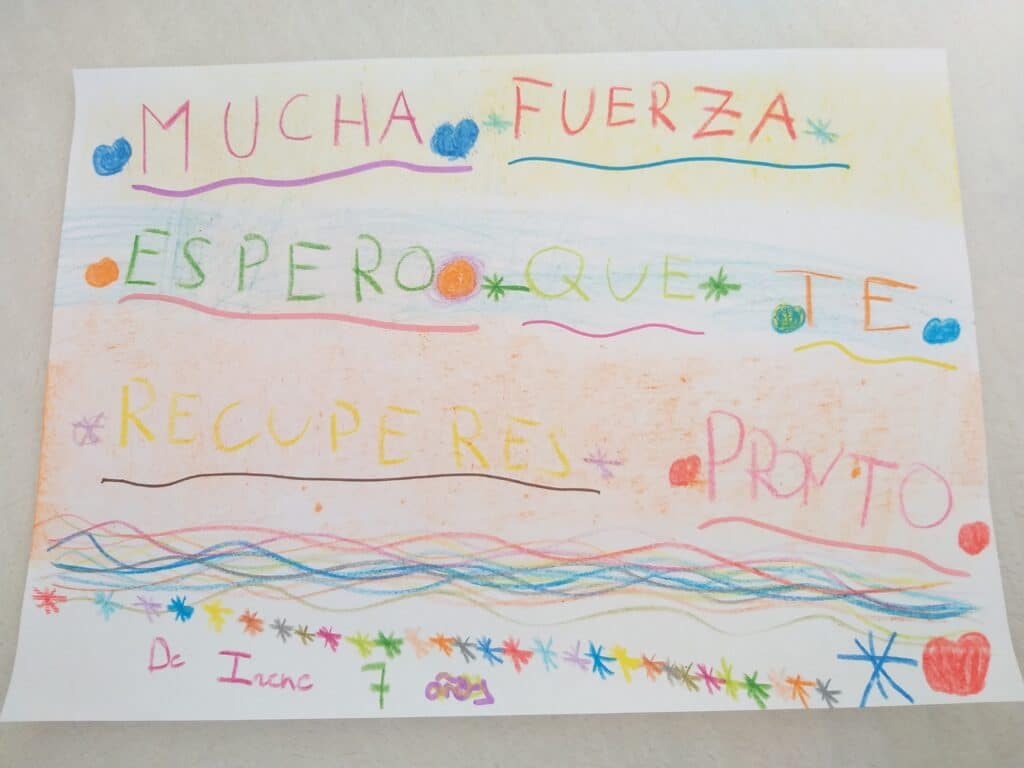 MUCHA FUERZA
ESPERO QUE TE
RECUPERES PRONTO
De Irene 7 años